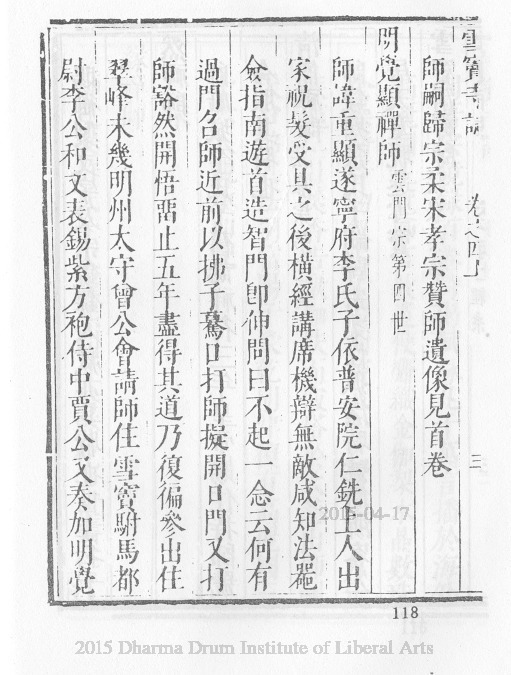 雪竇寺誌 卷之四上 三
師嗣歸宗柔宋孝宗贊師遺像見首卷
明覺顯禪師 雲門宗第四世
師諱重顯遂寧府李氏子依普安院仁銑上人出
家祝髮受具之後橫經講席機辯無敵咸知法器
僉指南遊首造智門卽伸問曰不起一念云何有
過門名師近前以拂子驀口打師擬開口門又打
師豁然開悟畱止五年盡得其道乃復徧參出住
翠峰未幾明州太守曾公會請師住雪竇駙馬都
尉李公和文表錫紫方袍侍中賈公又奏加明覺
2015-04-17
118
2015 Dharma Drum Institute of Liberal Arts